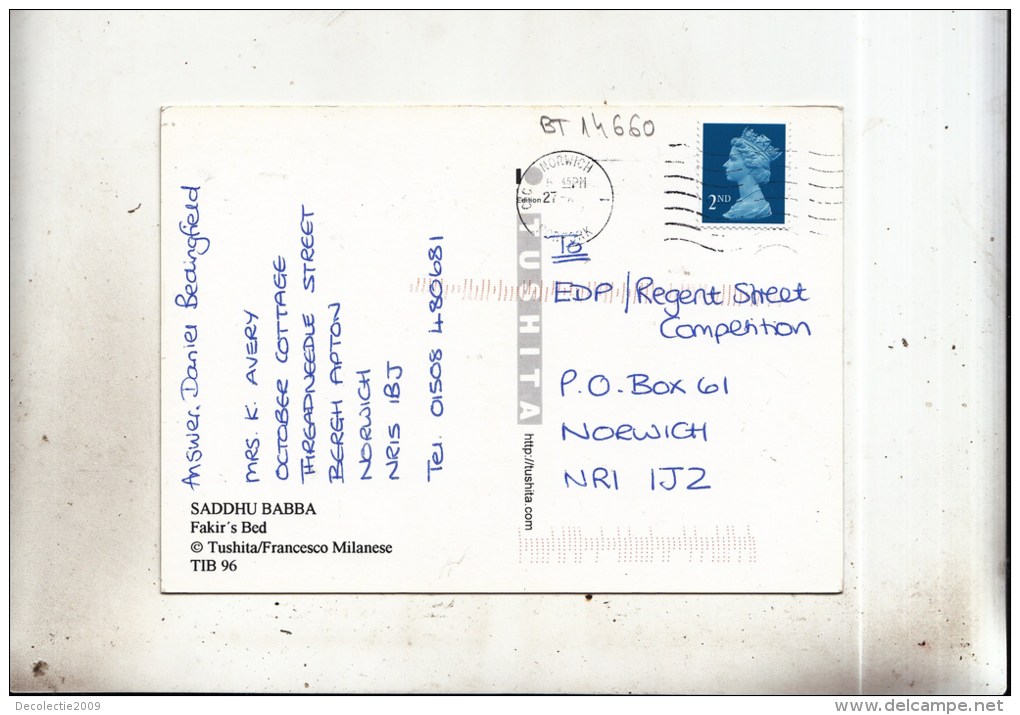 BT 14660
NORWICH
27
2ND
Answer. Daniel Bedingfield
MRS. K. AVERY
OCTOBER COTTAGE
THREADNEEDLE STREET
BERGH APTON
NORWICH
NR15 1BJ
Tel. 01508 480681
SADDHU BABBA
Fakir´s Bed
© Tushita/Francesco Milanese
TIB 96
Edition
TUSHITA
http://tushita.com
To
EDP/Regent Street
Competition
P.O. Box 61
NORWICH
NR1 1JZ
Decolectie2009
www.delcampe.net